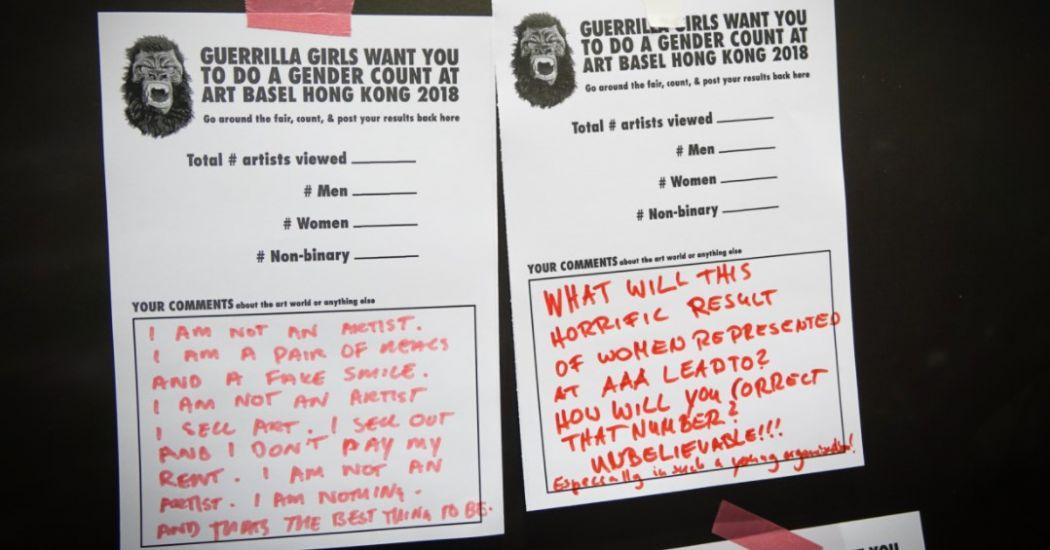 GUERRILLA GIRLS WANT YOU
TO DO A GENDER COUNT AT
ART BASEL HONG KONG 2018
Go around the fair, count, & post your results back here
Total # artists viewed
# Men
# Women
# Non-binary
YOUR COMMENTS about the art world or anything else
I AM NOT AN ARTIST.
I AM A PAIR OF HEALS
AND A FAKE SMILE.
I AM NOT AN ARTIST
I SELL ART. I SELL OUT
AND I DON'T PAY MY
RENT. I AM NOT AN
ARTIST. I AM NOTHING.
AND THATS THE BEST THING TO BE.
GUERRILLA GIRLS WANT YOU
TO DO A GENDER COUNT AT
ART BASEL HONG KONG 2018
Go around the fair, count, & post your results back here
Total # artists viewed
# Men
# Women
# Non-binary
YOUR COMMENTS about the art world or anything else
WHAT WILL THIS
HORRIFIC RESULT
OF WOMEN REPRESENTED
AT AAA LEAD TO?
HOW WILL YOU CORRECT
THAT NUMBER?
UNBELIEVABLE!!!
Especially in such a young organisation!
YOU